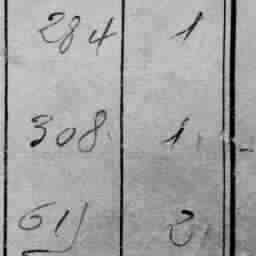 284 1
308 1
611 2